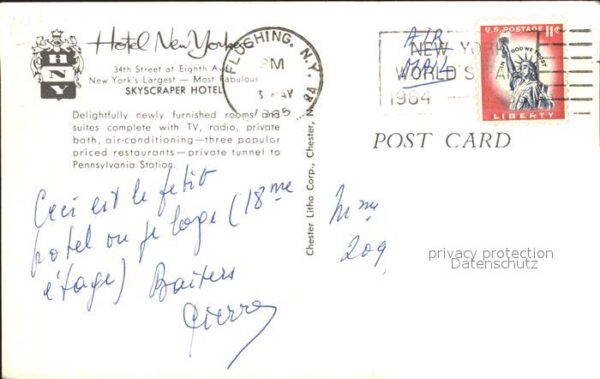 Hotel New Yorker
34th Street at Eighth Ave.
New York's Largest — Most Fabulous
SKYSCRAPER HOTEL
HNY
Delightfully newly furnished rooms and
suites complete with TV, radio, private
bath, air-conditioning—three popular
priced restaurants—private tunnel to
Pennsylvania Station.
Ceci est le petit
hotel ou je loge (18me
étage) Baisers
Pierre
Chester Litho Corp., Chester, N.
FLUSHING, N.Y.
PM
MAY
AIR
MAIL
NEW YORK
WORLD'S
1964
U.S. POSTAGE 11¢
IN GOD WE TRUST
LIBERTY
POST CARD
Mme
209
privacy protection
Datenschutz